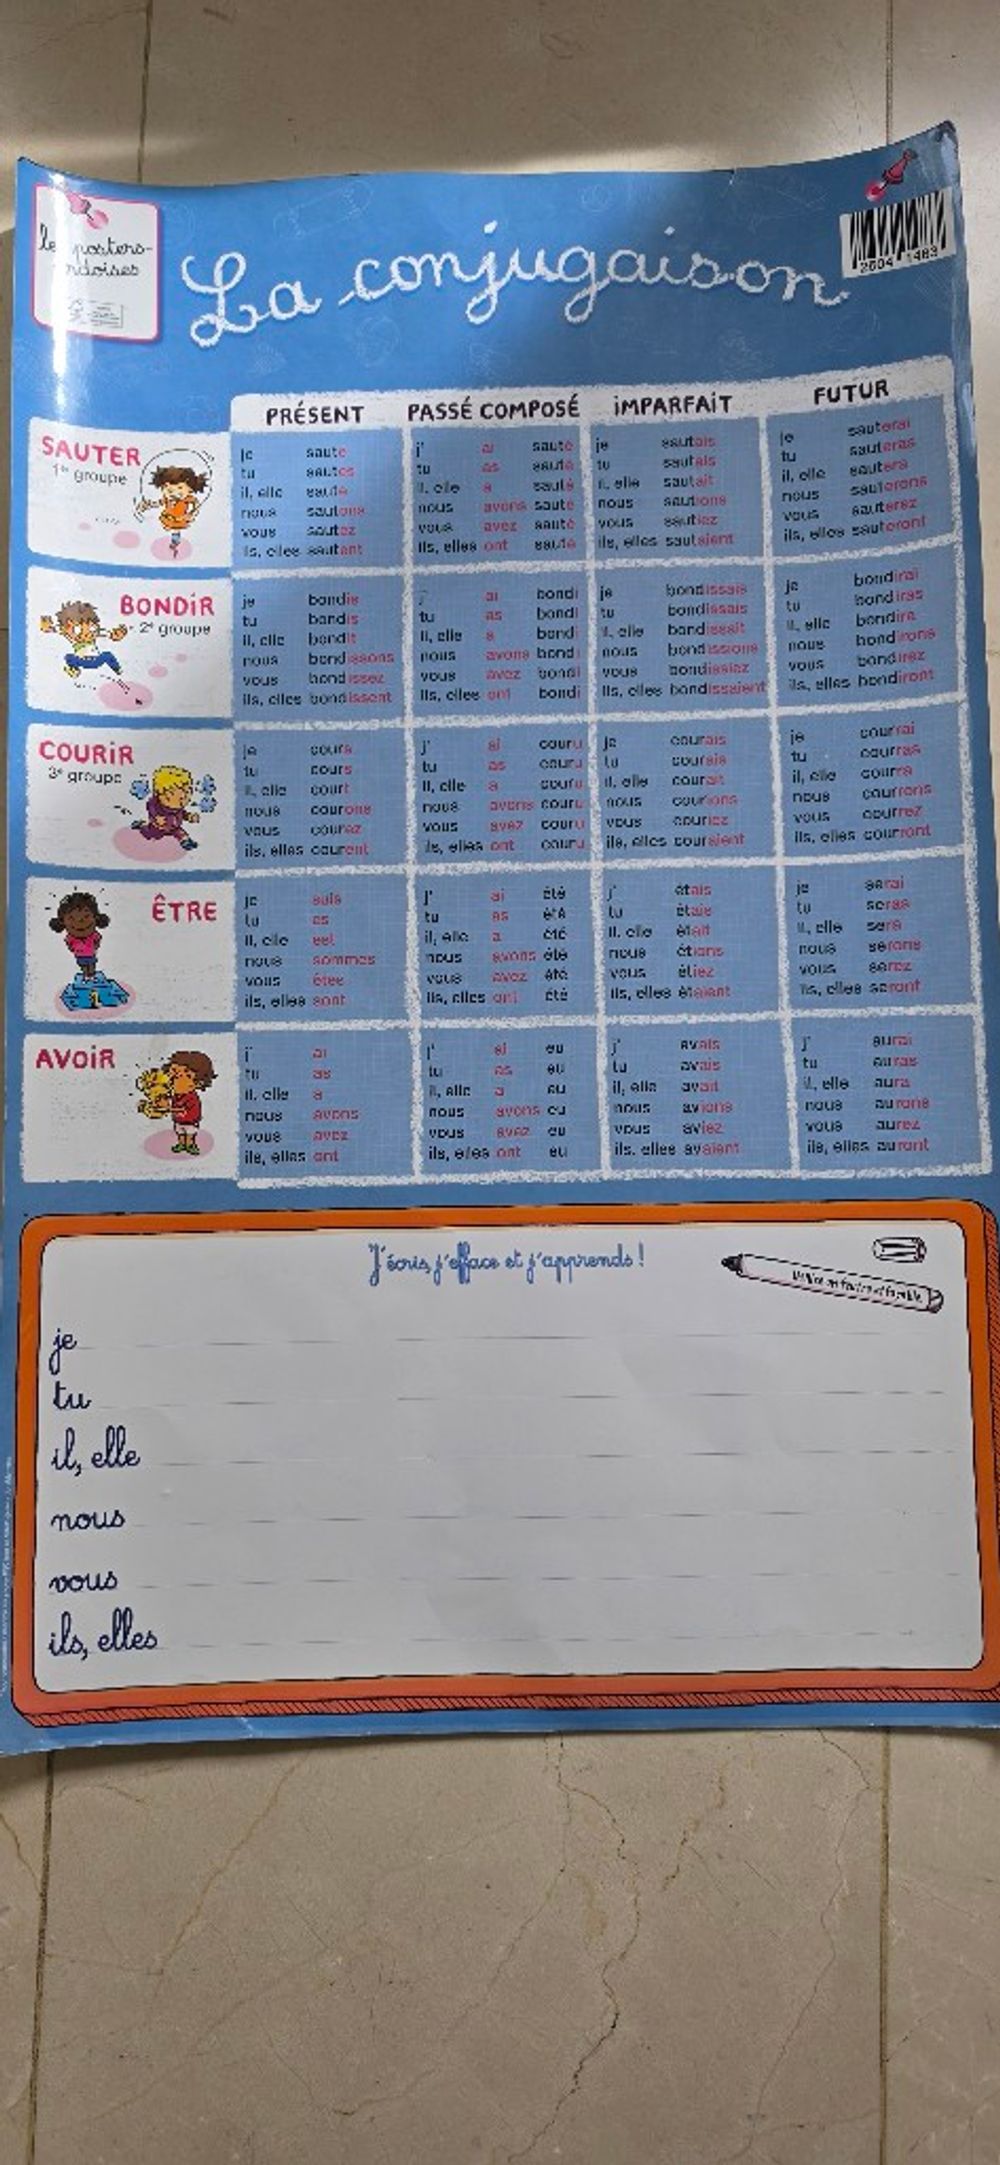 les posters-
ardoises
La conjugaison
2604 1483
PRÉSENT PASSÉ COMPOSÉ IMPARFAIT FUTUR
SAUTER
1er groupe
je saute
tu sautes
il, elle saute
nous sautons
vous sautez
ils, elles sautent
j' ai sauté
tu as sauté
il, elle a sauté
nous avons sauté
vous avez sauté
ils, elles ont sauté
je sautais
tu sautais
il, elle sautait
nous sautions
vous sautiez
ils, elles sautaient
je sauterai
tu sauteras
il, elle sautera
nous sauterons
vous sauterez
ils, elles sauteront
BONDIR
2e groupe
je bondis
tu bondis
il, elle bondit
nous bondissons
vous bondissez
ils, elles bondissent
j' ai bondi
tu as bondi
il, elle a bondi
nous avons bondi
vous avez bondi
ils, elles ont bondi
je bondissais
tu bondissais
il, elle bondissait
nous bondissions
vous bondissiez
ils, elles bondissaient
je bondirai
tu bondiras
il, elle bondira
nous bondirons
vous bondirez
ils, elles bondiront
COURIR
3e groupe
je cours
tu cours
il, elle court
nous courons
vous courez
ils, elles courent
j' ai couru
tu as couru
il, elle a couru
nous avons couru
vous avez couru
ils, elles ont couru
je courais
tu courais
il, elle courait
nous courions
vous couriez
ils, elles couraient
je courrai
tu courras
il, elle courra
nous courrons
vous courrez
ils, elles courront
ÊTRE
1
je suis
tu es
il, elle est
nous sommes
vous êtes
ils, elles sont
j' ai été
tu as été
il, elle a été
nous avons été
vous avez été
ils, elles ont été
j' étais
tu étais
il, elle était
nous étions
vous étiez
ils, elles étaient
je serai
tu seras
il, elle sera
nous serons
vous serez
ils, elles seront
AVOIR
j' ai
tu as
il, elle a
nous avons
vous avez
ils, elles ont
j' ai eu
tu as eu
il, elle a eu
nous avons eu
vous avez eu
ils, elles ont eu
j' avais
tu avais
il, elle avait
nous avions
vous aviez
ils, elles avaient
j' aurai
tu auras
il, elle aura
nous aurons
vous aurez
ils, elles auront
J'écris, j'efface et j'apprends !
Utilise un feutre effaçable.
je
tu
il, elle
nous
vous
ils, elles